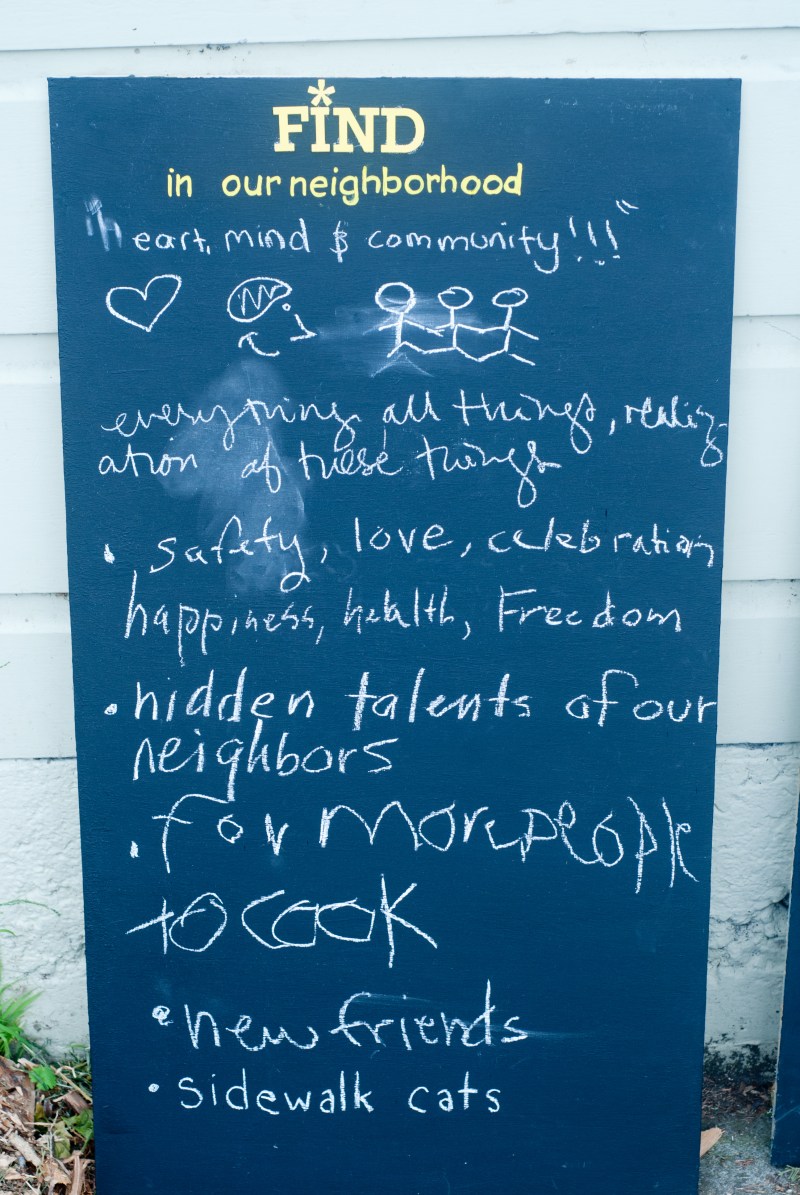 FIND
in our neighborhood
"heart, mind & community!!!"
everything all things, realiz-
ation of these things
• safety, love, celebration
happiness, health, Freedom
• hidden talents of our
neighbors
• for more people
to cook
• new friends
• sidewalk cats